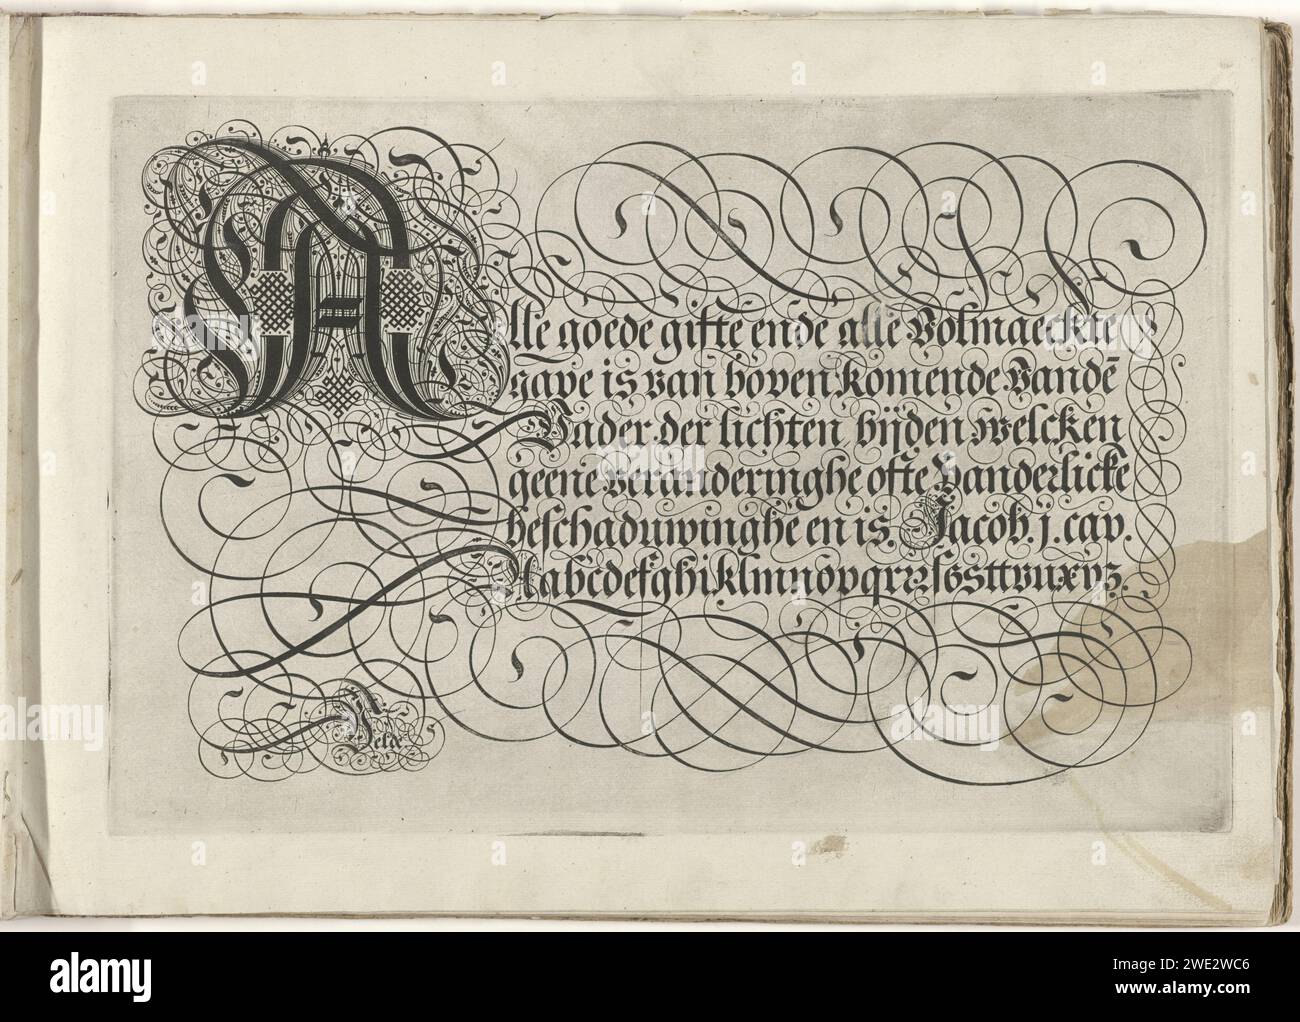 Alle goede gifte ende alle Volmaeckte
gave is van boven komende Vandē
Vader der lichten bijden welcken
geene veranderinghe ofte Vanderlicke
beschaduwinghe en is. Jacob. j. cap.
Aabcdefghiklmnopqrrsſsttvuxyz.
Velde
alamy
Image ID: 2WE2WC6
www.alamy.com